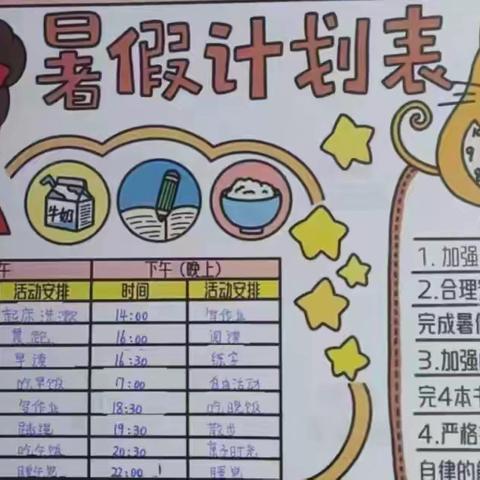 暑假计划表
牛奶
午 下午(晚上)
活动安排 时间 活动安排
起床洗漱 14:00 写作业
晨跑 16:00 阅读
早读 16:30 练字
吃早饭 17:00 自由活动
写作业 18:30 吃晚饭
跳绳 19:30 散步
吃午饭 20:30 亲子时光
睡午觉 22:00 睡觉
1.加强
2.合理
完成暑假
3.加强
完4本书
4.严格
自律的